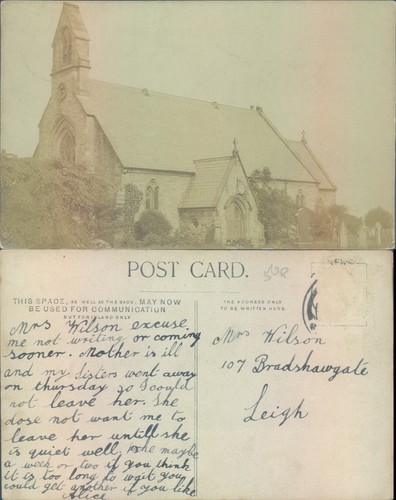 POST CARD.
50p
THIS SPACE, AS WELL AS THE BACK, MAY NOW
BE USED FOR COMMUNICATION
BUT FOR INLAND ONLY
THE ADDRESS ONLY
TO BE WRITTEN HERE.
Mrs Wilson excuse
me not writing or coming
sooner. Mother is ill
and my sisters went away
on thursday so I could
not leave her. She
dose not want me to
leave her untill she
is quiet well, she maybe
a week or two if you think
it is too long to wait you
could get another if you like
Alice
Mrs Wilson
107 Bradshawgate
Leigh